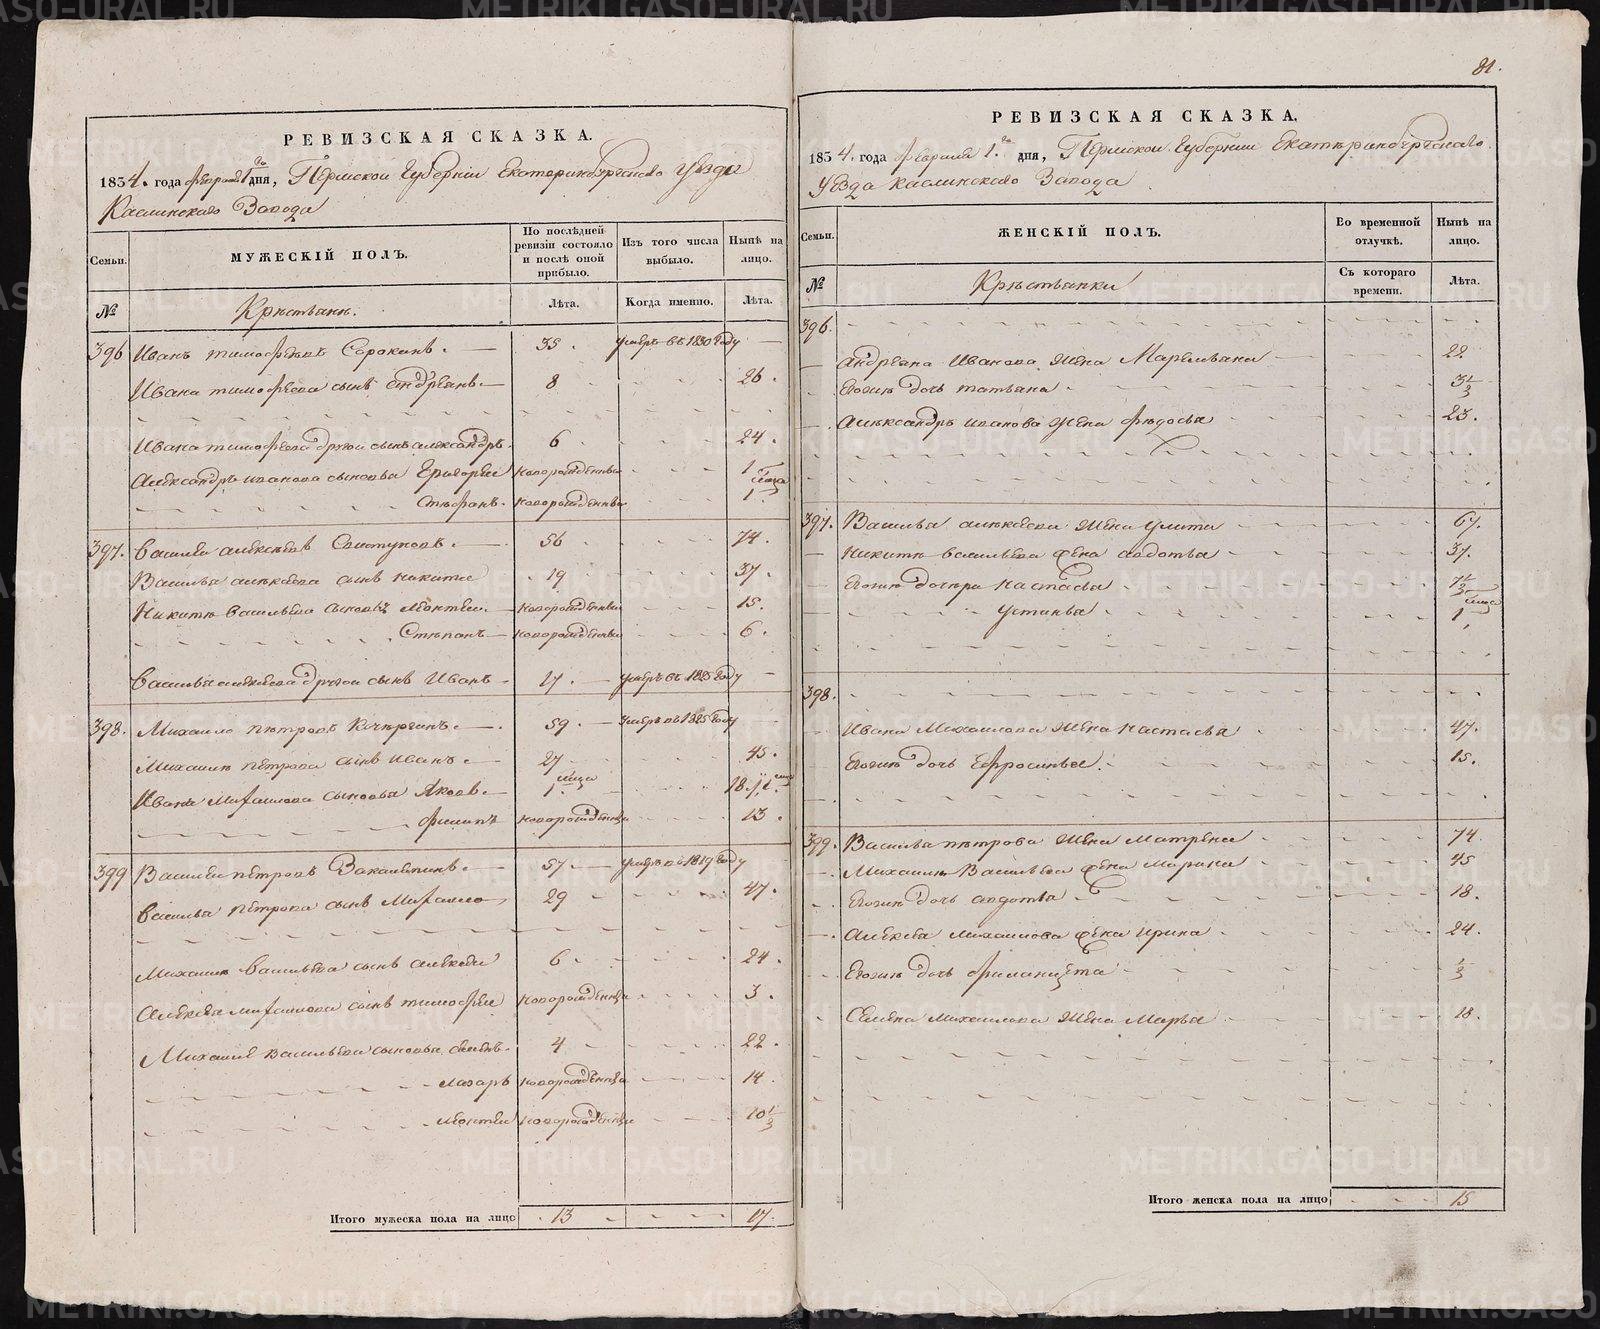 81.
РЕВИЗСКАЯ СКАЗКА.
1834. года февраля 1го дня, Пермской Губернии Екатеринбургского Уезда
Каслинского Завода
Семьи.
МУЖЕСКІЙ ПОЛЪ.
По послѣдней ревизіи состояло и послѣ оной прибыло.
Изъ того числа выбыло.
Нынѣ на лицо.
№
Крестьяне.
Лѣта.
Когда именно.
Лѣта.
396 Иванъ тимофеевъ Сорокинъ. 35. умеръ въ 1830 году
Ивана тимофеева сынъ андреянъ. 8 26.
Ивана тимофеева другой сынъ александръ. 6 24.
Александра иванова сыновья Григорей новорожденны 1
Стефанъ. новорожденны 1 месяца
397. Василей алексеевъ Свистуновъ. 56 74.
Василья алексеева сынъ никита 19 37.
Никиты васильева сыновья леонтей. новорожденны 15.
Степанъ новорожденны 6.
Василья алексеева другой сынъ Иванъ 17. умеръ въ 1825 году
398. Михайло петровъ 59. умеръ въ 1825 году
Михайла петрова сынъ иванъ. 27 45.
Ивана Михайлова сыновья Яковъ. 1. месяца 18.
филипъ новорожденны 13.
399 Василей петровъ 57. умеръ въ 1819 году
Василья петрова сынъ Михайло 29 47.
Михайла Васильева сынъ алексей 6. 24.
Алексея михайлова сынъ тимофей новорожденны 3.
Михайла васильева сыновья семенъ. 4 22.
лазарь новорожденны 14.
леонтей новорожденны 10½
Итого мужеска пола на лицо 13 17.
РЕВИЗСКАЯ СКАЗКА.
1834. года февраля 1го дня, Пермской Губернии Екатеринбургского
Уезда каслинского Завода
Семьи.
ЖЕНСКІЙ ПОЛЪ.
Во временной отлучкѣ.
Нынѣ на лицо.
№
Крестьянки
Съ котораго времени.
Лѣта.
396.
Андреяна Иванова жена Маремьяна 22
Егожъ дочь татьяна 3½
Александра иванова жена федосья 23.
397. Василья алексеева жена улита 67.
Никиты васильева жена авдотья 37.
Егожъ дочери настасья
Устинья 1 месяца
398.
Ивана Михайлова жена настасья 47.
Егожъ дочь Ефросинья. 15.
399. Василья петрова жена Матрена 74.
Михайла Васильева жена Марина 45
Егожъ дочь авдотья 18.
Алексея михайлова жена ирина 24.
Егожъ дочь ½
Семена михайлова жена Марья 18.
Итого женска пола на лицо 15
METRIKI.GASO-URAL.RU